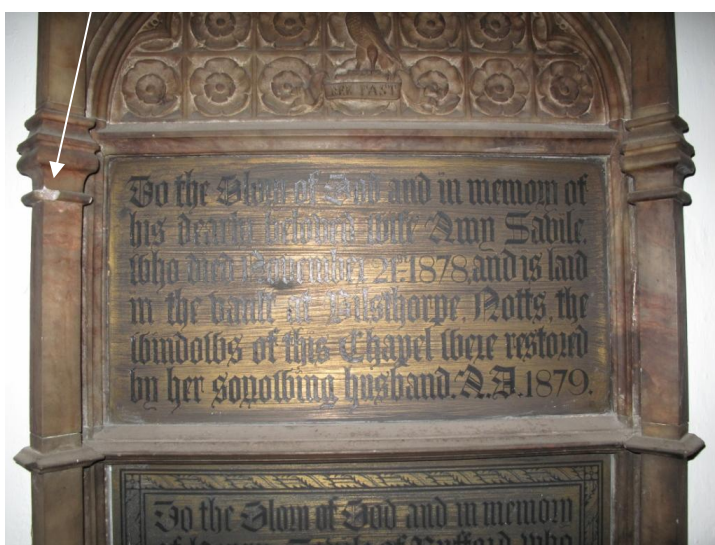 BE FAST
To the Glory of God and in memory of
his dearly beloved wife Amy Savile,
who died November 21. 1878, and is laid
in the vault at Bilsthorpe, Notts, the
windows of this Chapel were restored
by her sorrowing husband. A.D. 1879.
To the Glory of God and in memory
of Savile of Rufford who